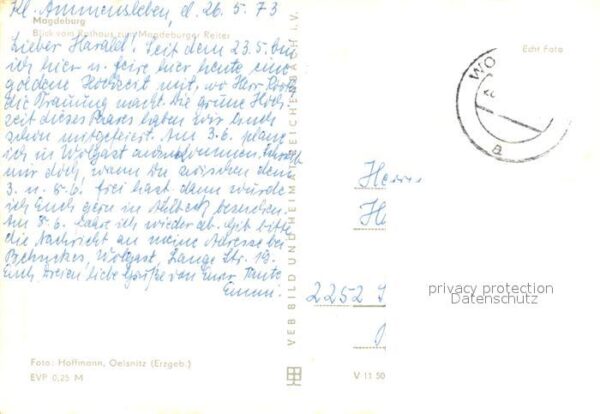 Kl. Ammensleben, d. 26. 5. 73
Magdeburg
Blick vom Rathaus zum Magdeburger Reiter
Lieber Harald! Seit dem 23.5. bin
ich hier u. feire hier heute eine
goldene Hochzeit mit, wo Herr
die Trauung macht. Die grüne Hoch-
zeit dieses Paares haben wir auch
schon mitgefeiert. Am 3.6. plane
ich in Wolgast anzukommen. Schreib
mir doch, wann Du zwischen dem
3. u. 8.6. frei hast dann würde
ich Euch gern in Ahlbeck besuchen.
Am 8.6. fahre ich wieder ab. Gib bitte
die Nachricht an meine Adresse bei
Wolgast, Lange Str. 19.
Euch dreien liebe Grüße von Eurer Tante
Emmi.
Foto: Hoffmann, Oelsnitz (Erzgeb.)
EVP 0,25 M
VEB BILD UND HEIMAT REICHENBACH i. V.
V 11 50
Echt Foto
WO
a
Herrn
H
2252
privacy protection
Datenschutz